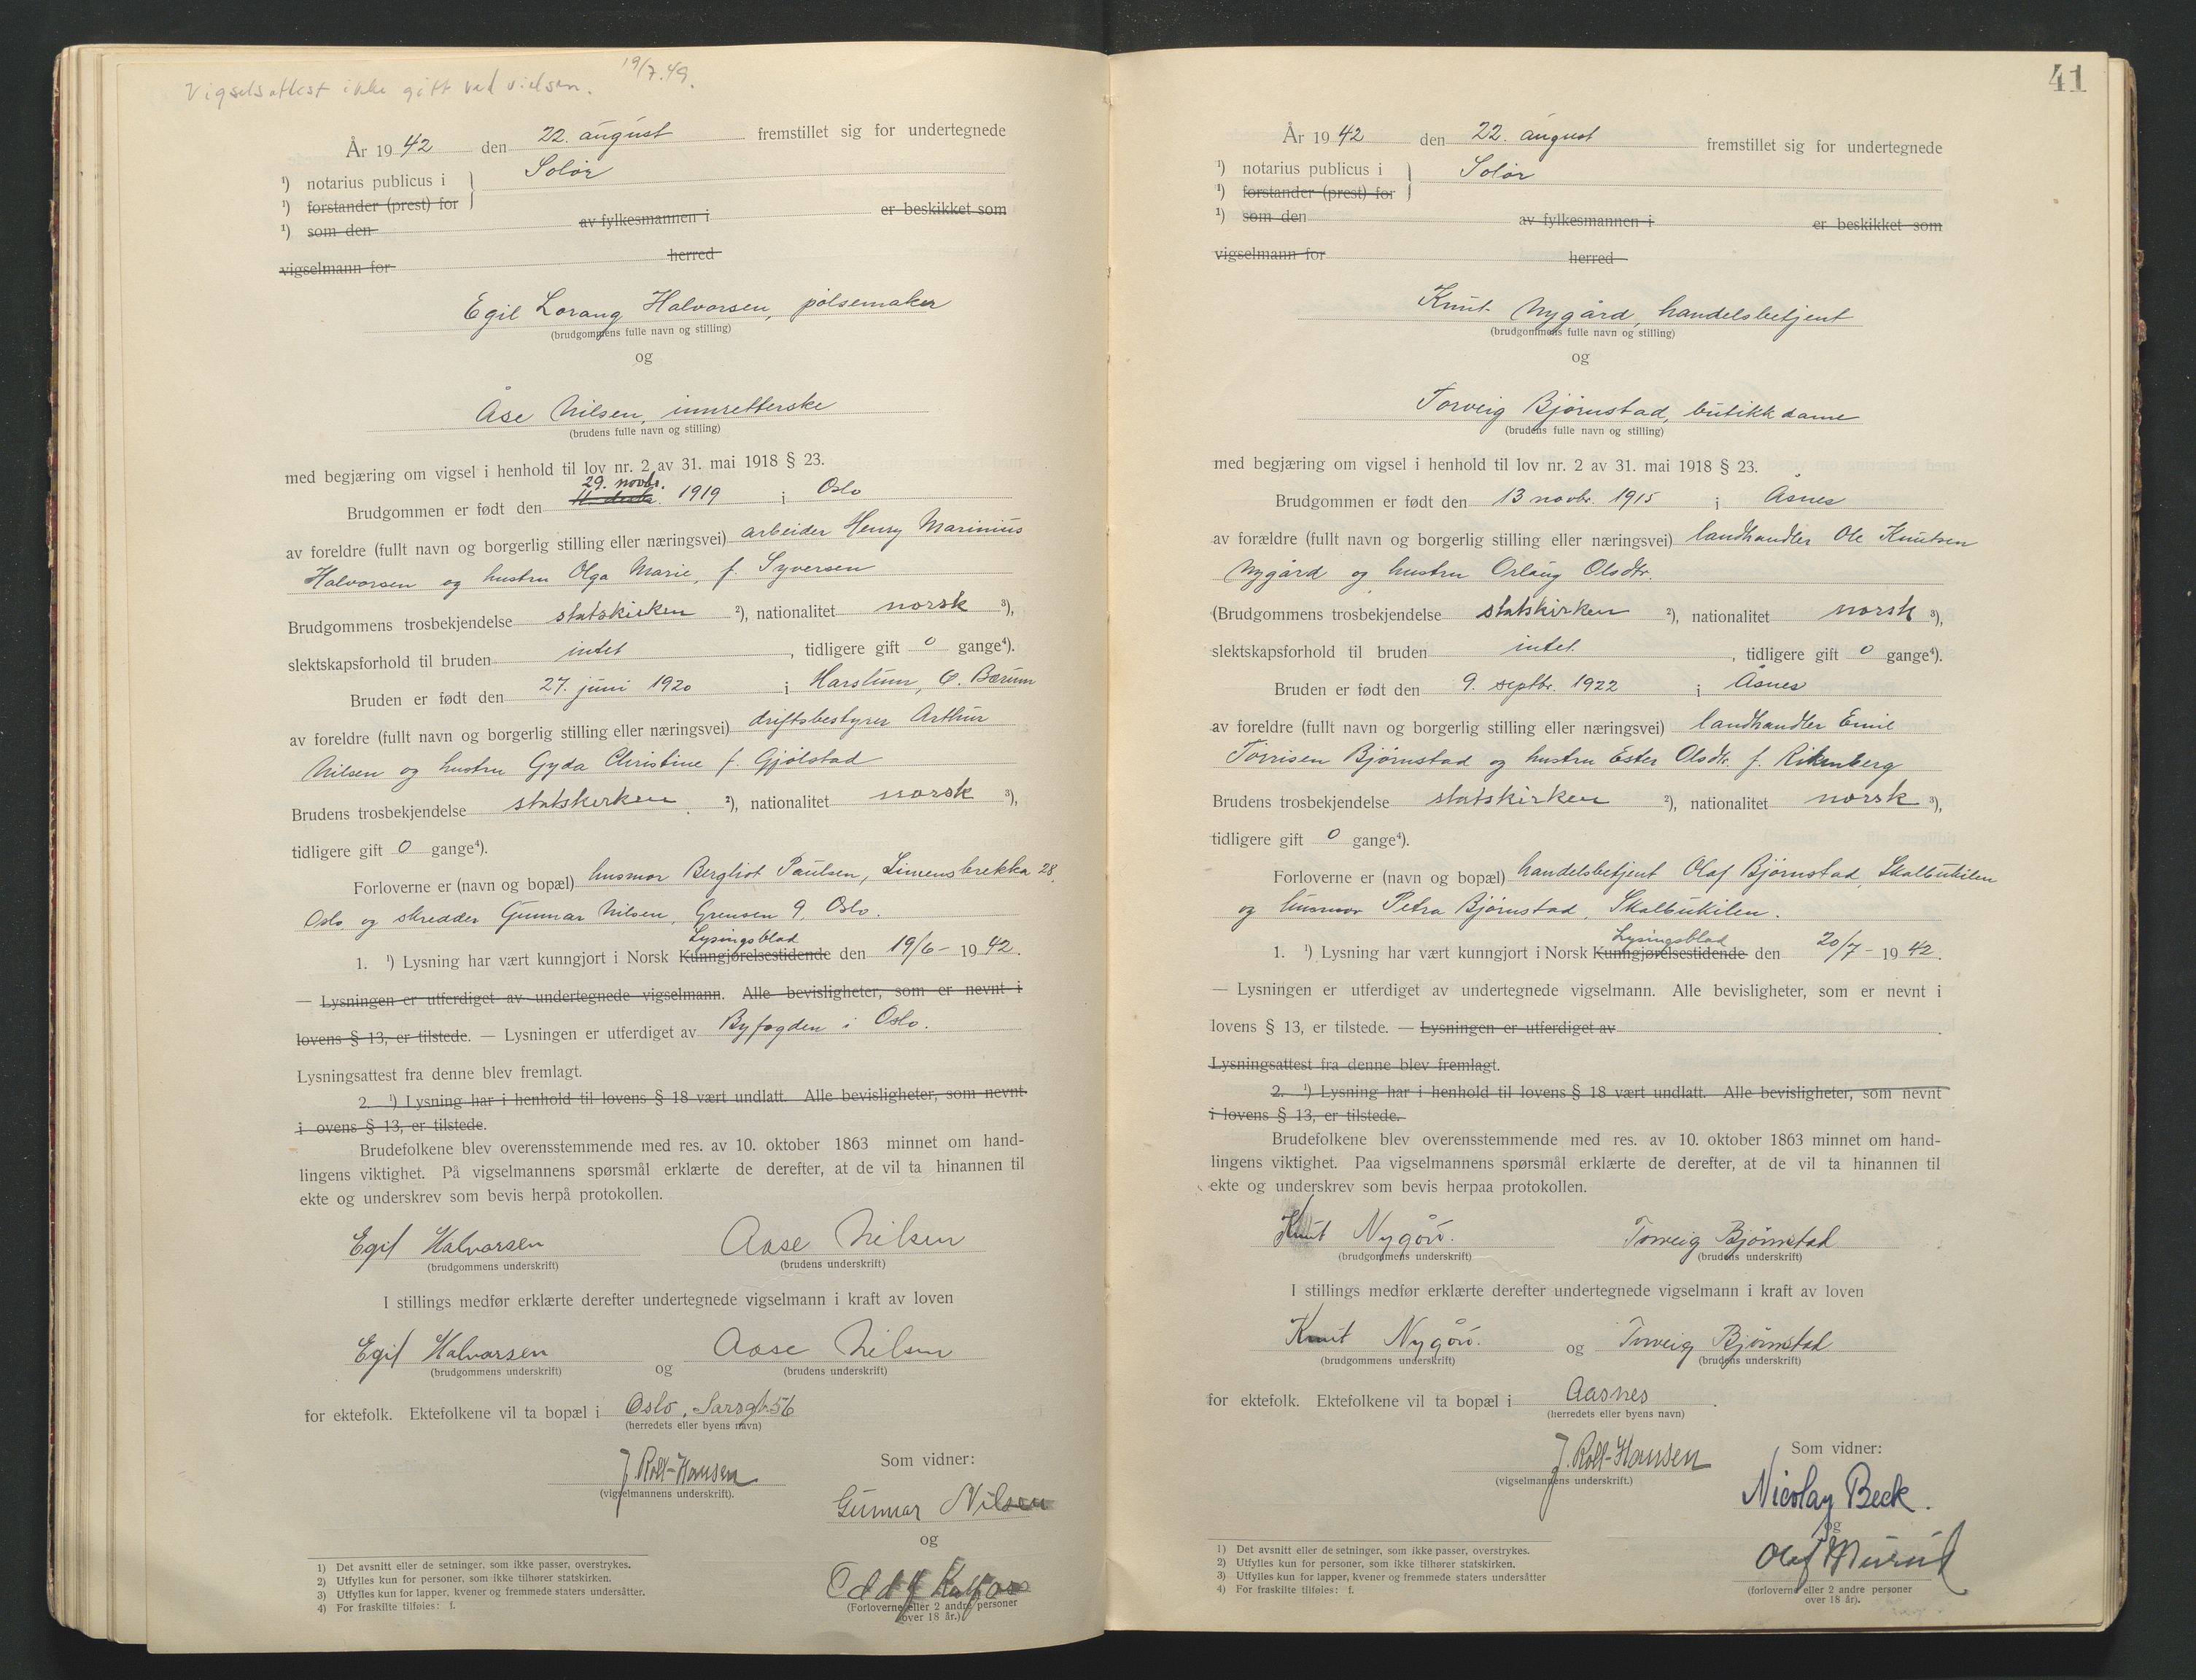 Vigselsattest ikke gitt ved vielsen. 19/7.49.
År 1942 den 22. august fremstillet sig for undertegnede
¹) notarius publicus i } Solør
¹) forstander (prest) for
¹) som den av fylkesmannen i er beskikket som
vigselmann for herred
Egil Lorang Halvorsen, pølsemaker
(brudgommens fulle navn og stilling)
og
Åse Nilsen, innretterske
(brudens fulle navn og stilling)
med begjæring om vigsel i henhold til lov nr. 2 av 31. mai 1918 § 23.
29. novbr.
Brudgommen er født den 1919 i Oslo
av foreldre (fullt navn og borgerlig stilling eller næringsvei) arbeider Henry Marinius
Halvorsen og hustru Olga Marie, f. Syversen
Brudgommens trosbekjendelse statskirken ²), nationalitet norsk ³),
slektskapsforhold til bruden intet , tidligere gift 0 gange⁴).
Bruden er født den 27. juni 1920 i Ø. Bærum
av foreldre (fullt navn og borgerlig stilling eller næringsvei) driftsbestyrer Arthur
Nilsen og hustru Gyda Christine f. Gjølstad
Brudens trosbekjendelse statskirken ²), nationalitet norsk ³),
tidligere gift 0 gange⁴).
Forloverne er (navn og bopæl) husmor Bergliot Paulsen, Simensbrekka 28,
Oslo og skredder Gunnar Nilsen, Grensen 9, Oslo.
Lysingsblad
1. ¹) Lysning har vært kunngjort i Norsk Kunngjørelsestidende den 19/6 - 1942.
— Lysningen er utferdiget av undertegnede vigselmann. Alle bevisligheter, som er nevnt i
lovens § 13, er tilstede. — Lysningen er utferdiget av Byfogden i Oslo.
Lysningsattest fra denne blev fremlagt.
2. ¹) Lysning har i henhold til lovens § 18 vært undlatt. Alle bevisligheter, som nevnt
i ovens § 13, er tilstede.
Brudefolkene blev overensstemmende med res. av 10. oktober 1863 minnet om hand-
lingens viktighet. På vigselmannens spørsmål erklærte de derefter, at de vil ta hinannen til
ekte og underskrev som bevis herpå protokollen.
Egil Halvorsen Aase Nilsen
(brudgommens underskrift) (brudens underskrift)
I stillings medfør erklærte derefter undertegnede vigselmann i kraft av loven
Egil Halvorsen og Aase Nilsen
(brudgommens underskrift) (brudens underskrift)
for ektefolk. Ektefolkene vil ta bopæl i Oslo, Sarsgt. 56
(herredets eller byens navn)
J. Roll-Hansen
(vigselmannens underskrift).
Som vidner:
Gunnar Nilsen
og
(Forloverne eller 2 andre personer
over 18 år.)
1) Det avsnitt eller de setninger, som ikke passer, overstrykes.
2) Utfylles kun for personer, som ikke tilhører statskirken.
3) Utfylles kun for lapper, kvener og fremmede staters undersåtter.
4) For fraskilte tilføies: f.
41
År 1942 den 22. august fremstillet sig for undertegnede
¹) notarius publicus i } Solør
¹) forstander (prest) for
¹) som den av fylkesmannen i er beskikket som
vigselmann for herred
Knut Nygård, handelsbetjent
(brudgommens fulle navn og stilling)
og
Torveig Bjørnstad, butikkdame
(brudens fulle navn og stilling)
med begjæring om vigsel i henhold til lov nr. 2 av 31. mai 1918 § 23.
Brudgommen er født den 13 novbr. 1915 i Åsnes
av forældre (fullt navn og borgerlig stilling eller næringsvei) landhandler Ole Knutsen
Nygård og hustru Orlaug Olsdtr.
(Brudgommens trosbekjendelse statskirken ²), nationalitet norsk ³),
slektskapsforhold til bruden intet , tidligere gift 0 gange⁴).
Bruden er født den 9. septbr. 1922 i Åsnes
av foreldre (fullt navn og borgerlig stilling eller næringsvei) landhandler Emil
Torrisen Bjørnstad og hustru Ester Olsdtr. f. Rikenberg
Brudens trosbekjendelse statskirken ²), nationalitet norsk ³),
tidligere gift 0 gange⁴).
Forloverne er (navn og bopæl) handelsbetjent Olaf Bjørnstad, Skalbukilen
og husmor Petra Bjørnstad, Skalbukilen.
Lysingsblad
1. ¹) Lysning har vært kunngjort i Norsk Kunngjørelsestidende den 20/7 - 1942.
— Lysningen er utferdiget av undertegnede vigselmann. Alle bevisligheter, som er nevnt i
lovens § 13, er tilstede. — Lysningen er utferdiget av .
Lysningsattest fra denne blev fremlagt.
2. ¹) Lysning har i henhold til lovens § 18 vært undlatt. Alle bevisligheter, som nevnt
i lovens § 13, er tilstede.
Brudefolkene blev overensstemmende med res. av 10. oktober 1863 minnet om hand-
lingens viktighet. Paa vigselmannens spørsmål erklærte de derefter, at de vil ta hinannen til
ekte og underskrev som bevis herpaa protokollen.
Knut Nygård. Torveig Bjørnstad
(brudgommens underskrift) (brudens underskrift)
I stillings medfør erklærte derefter undertegnede vigselmann i kraft av loven
Knut Nygård. og Torveig Bjørnstad
(brudgommens underskrift) (brudens underskrift)
for ektefolk. Ektefolkene vil ta bopæl i Aasnes .
(herredets eller byens navn)
J. Roll-Hansen
(vigselmannens underskrift.)
Som vidner:
Nicolay Beck.
og
Olaf Murud
(forloverne eller 2 andre personer
over 18 år).
1) Det avsnitt eller de setninger, som ikke passer, overstrykes.
2) Utfylles kun for personer, som ikke tilhører statskirken.
3) Utfylles kun for lapper, kvener og fremmede staters undersåtter
4) For fraskilte tilføies: f.